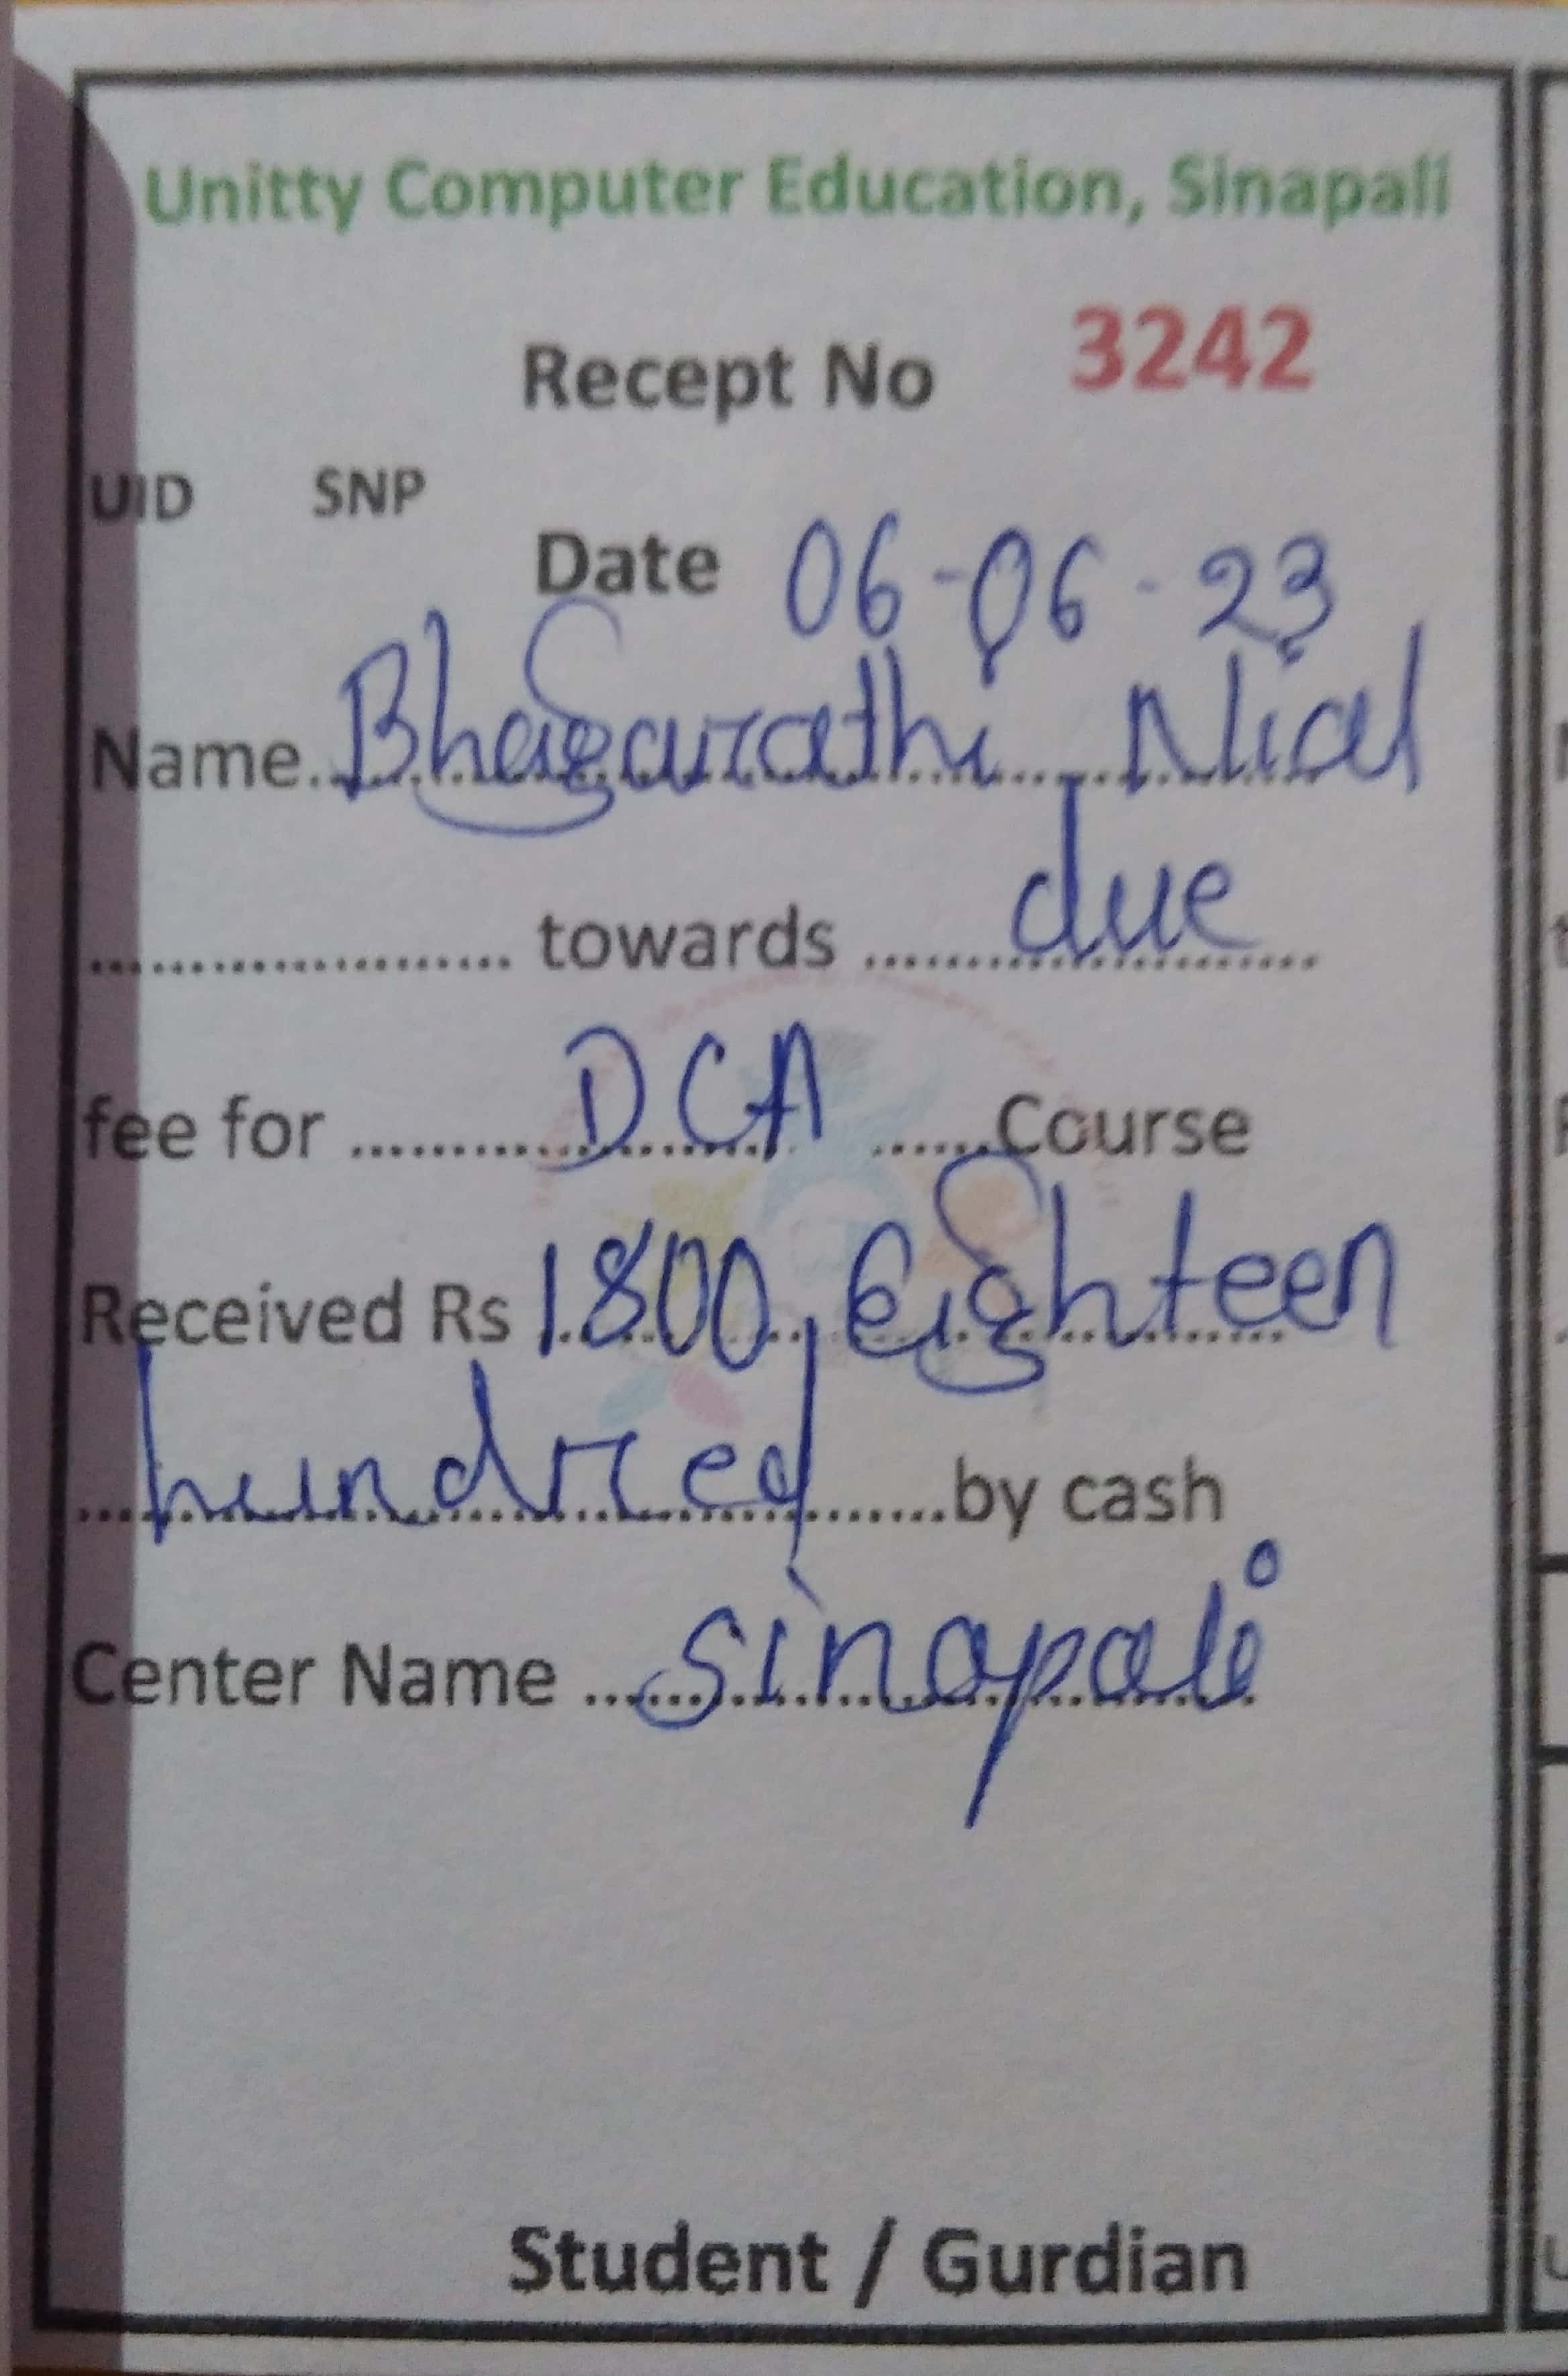 Unitty Computer Education, Sinapali
Recept No 3242
UID SNP
Date 06-06-23
Name Bhagarathi Nial
.................... towards ........ due ........
fee for ........ DCA ......Course
Received Rs 1800, Eighteen
hundred ........by cash
Center Name ....... Sinapali
Student / Gurdian